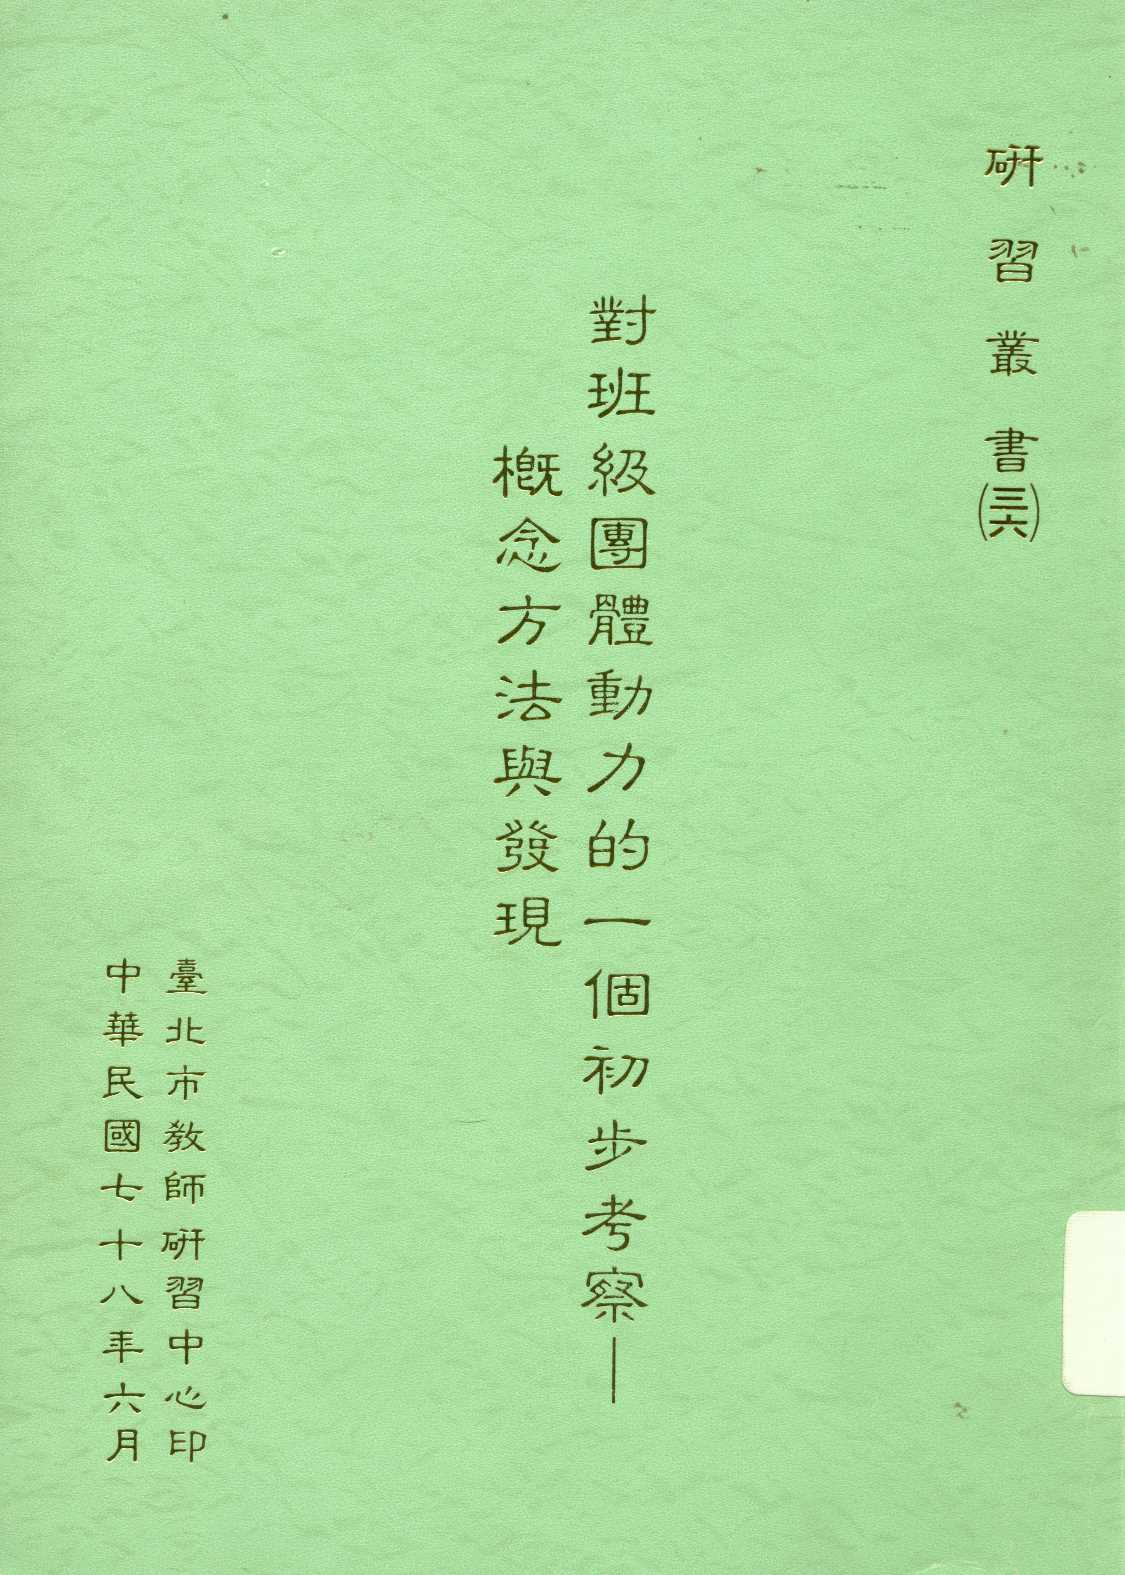 研習叢書(三六)
對班級團體動力的一個初步考察—
概念方法與發現
臺北市教師研習中心印
中華民國七十八年六月